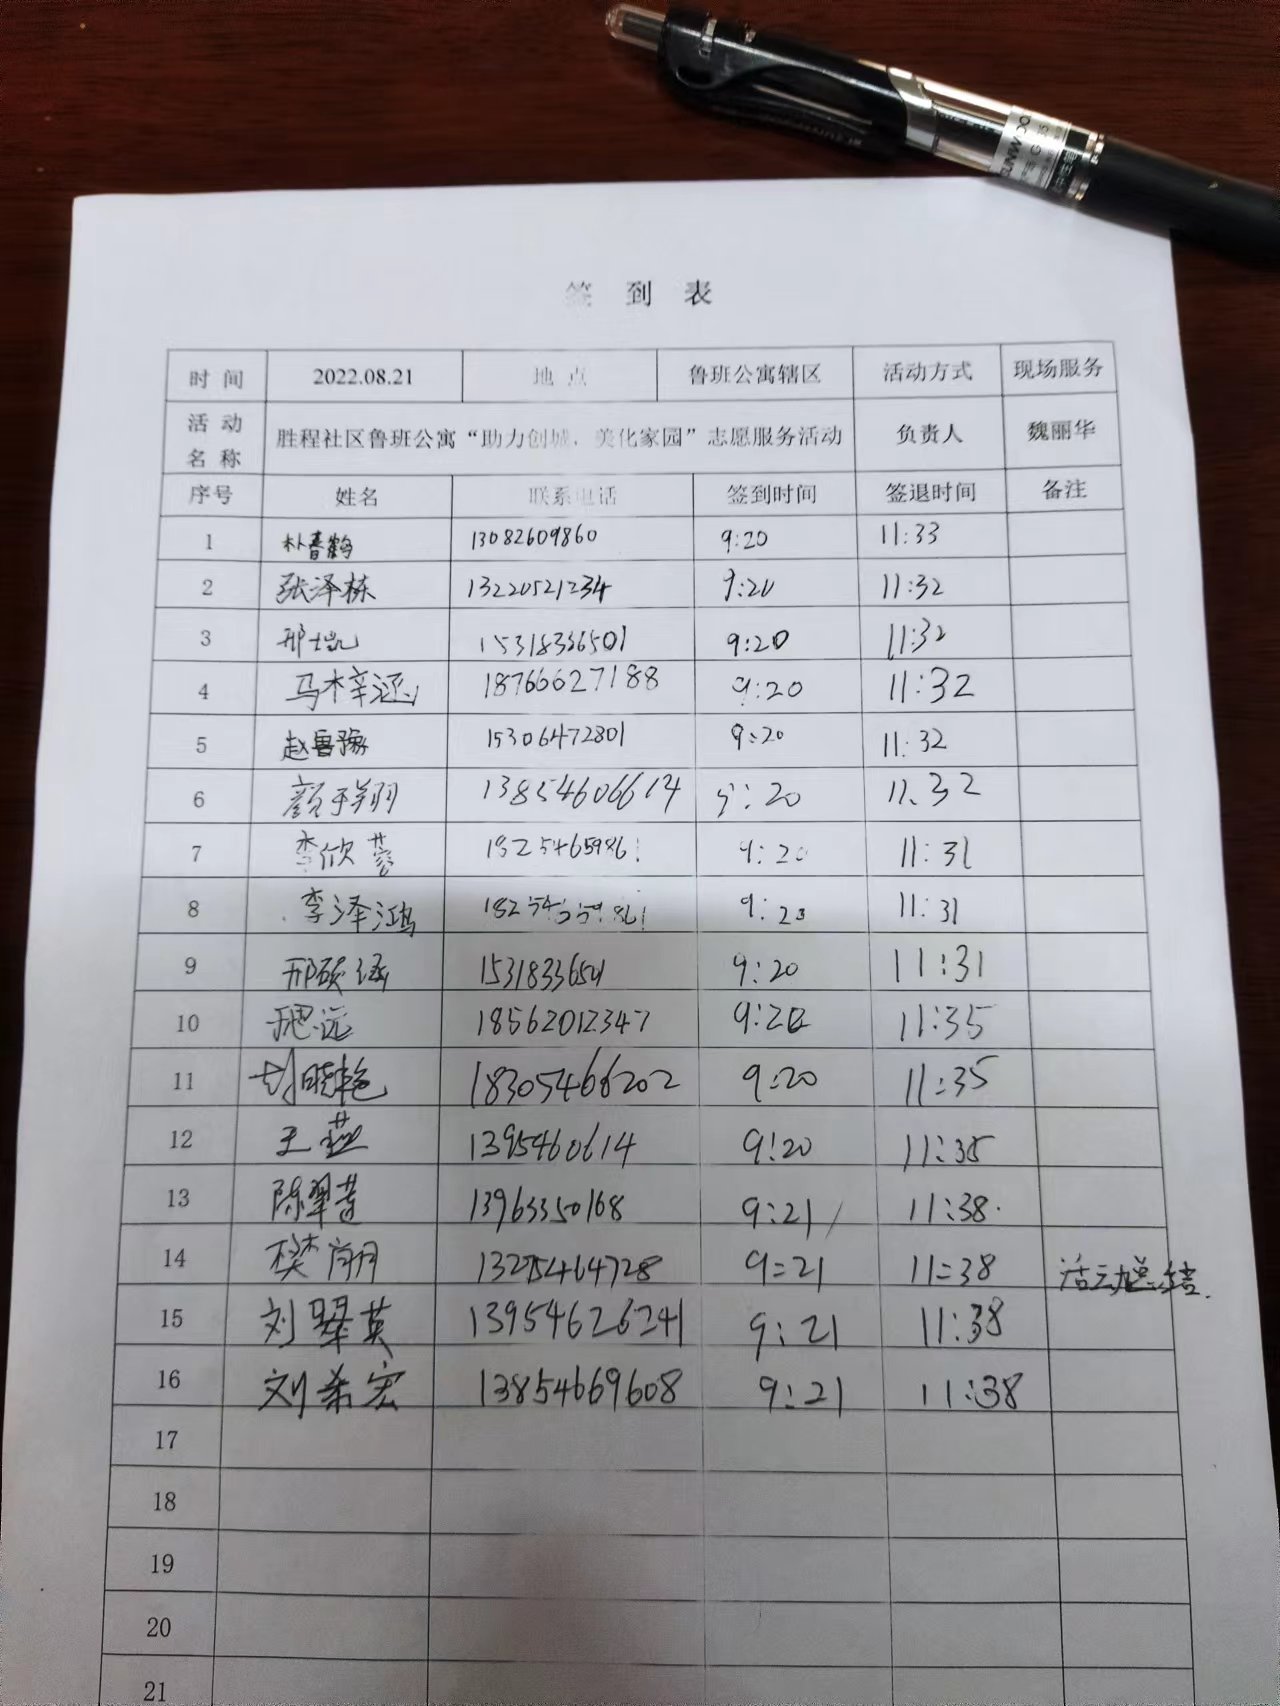 SUNWOOD
签 到 表
时 间 2022.08.21 地 点 鲁班公寓辖区 活动方式 现场服务
活 动 名 称 胜程社区鲁班公寓“助力创城，美化家园”志愿服务活动 负责人 魏丽华
序号 姓名 联系电话 签到时间 签退时间 备注
1 朴春鹤 13082609860 9:20 11:33
2 张泽栋 13220521234 9:20 11:32
3 邢凯 15318336501 9:20 11:32
4 马梓涵 18766627188 9:20 11:32
5 赵鲁豫 15306472801 9:20 11:32
6 颜于翔 13854606614 9:20 11:32
7 李欣蓉 9:20 11:31
8 李泽鸿 9:20 11:31
9 邢硕涵 9:20 11:31
10 18562012347 9:20 11:35
11 刘晓艳 18305466202 9:20 11:35
12 王燕 1395460614 9:20 11:35
13 陈翠莲 13963350168 9:21 11:38
14 樊 13275464728 9:21 11:38 活动总结.
15 刘翠英 13954626241 9:21 11:38
16 刘希宏 13854669608 9:21 11:38
17
18
19
20
21